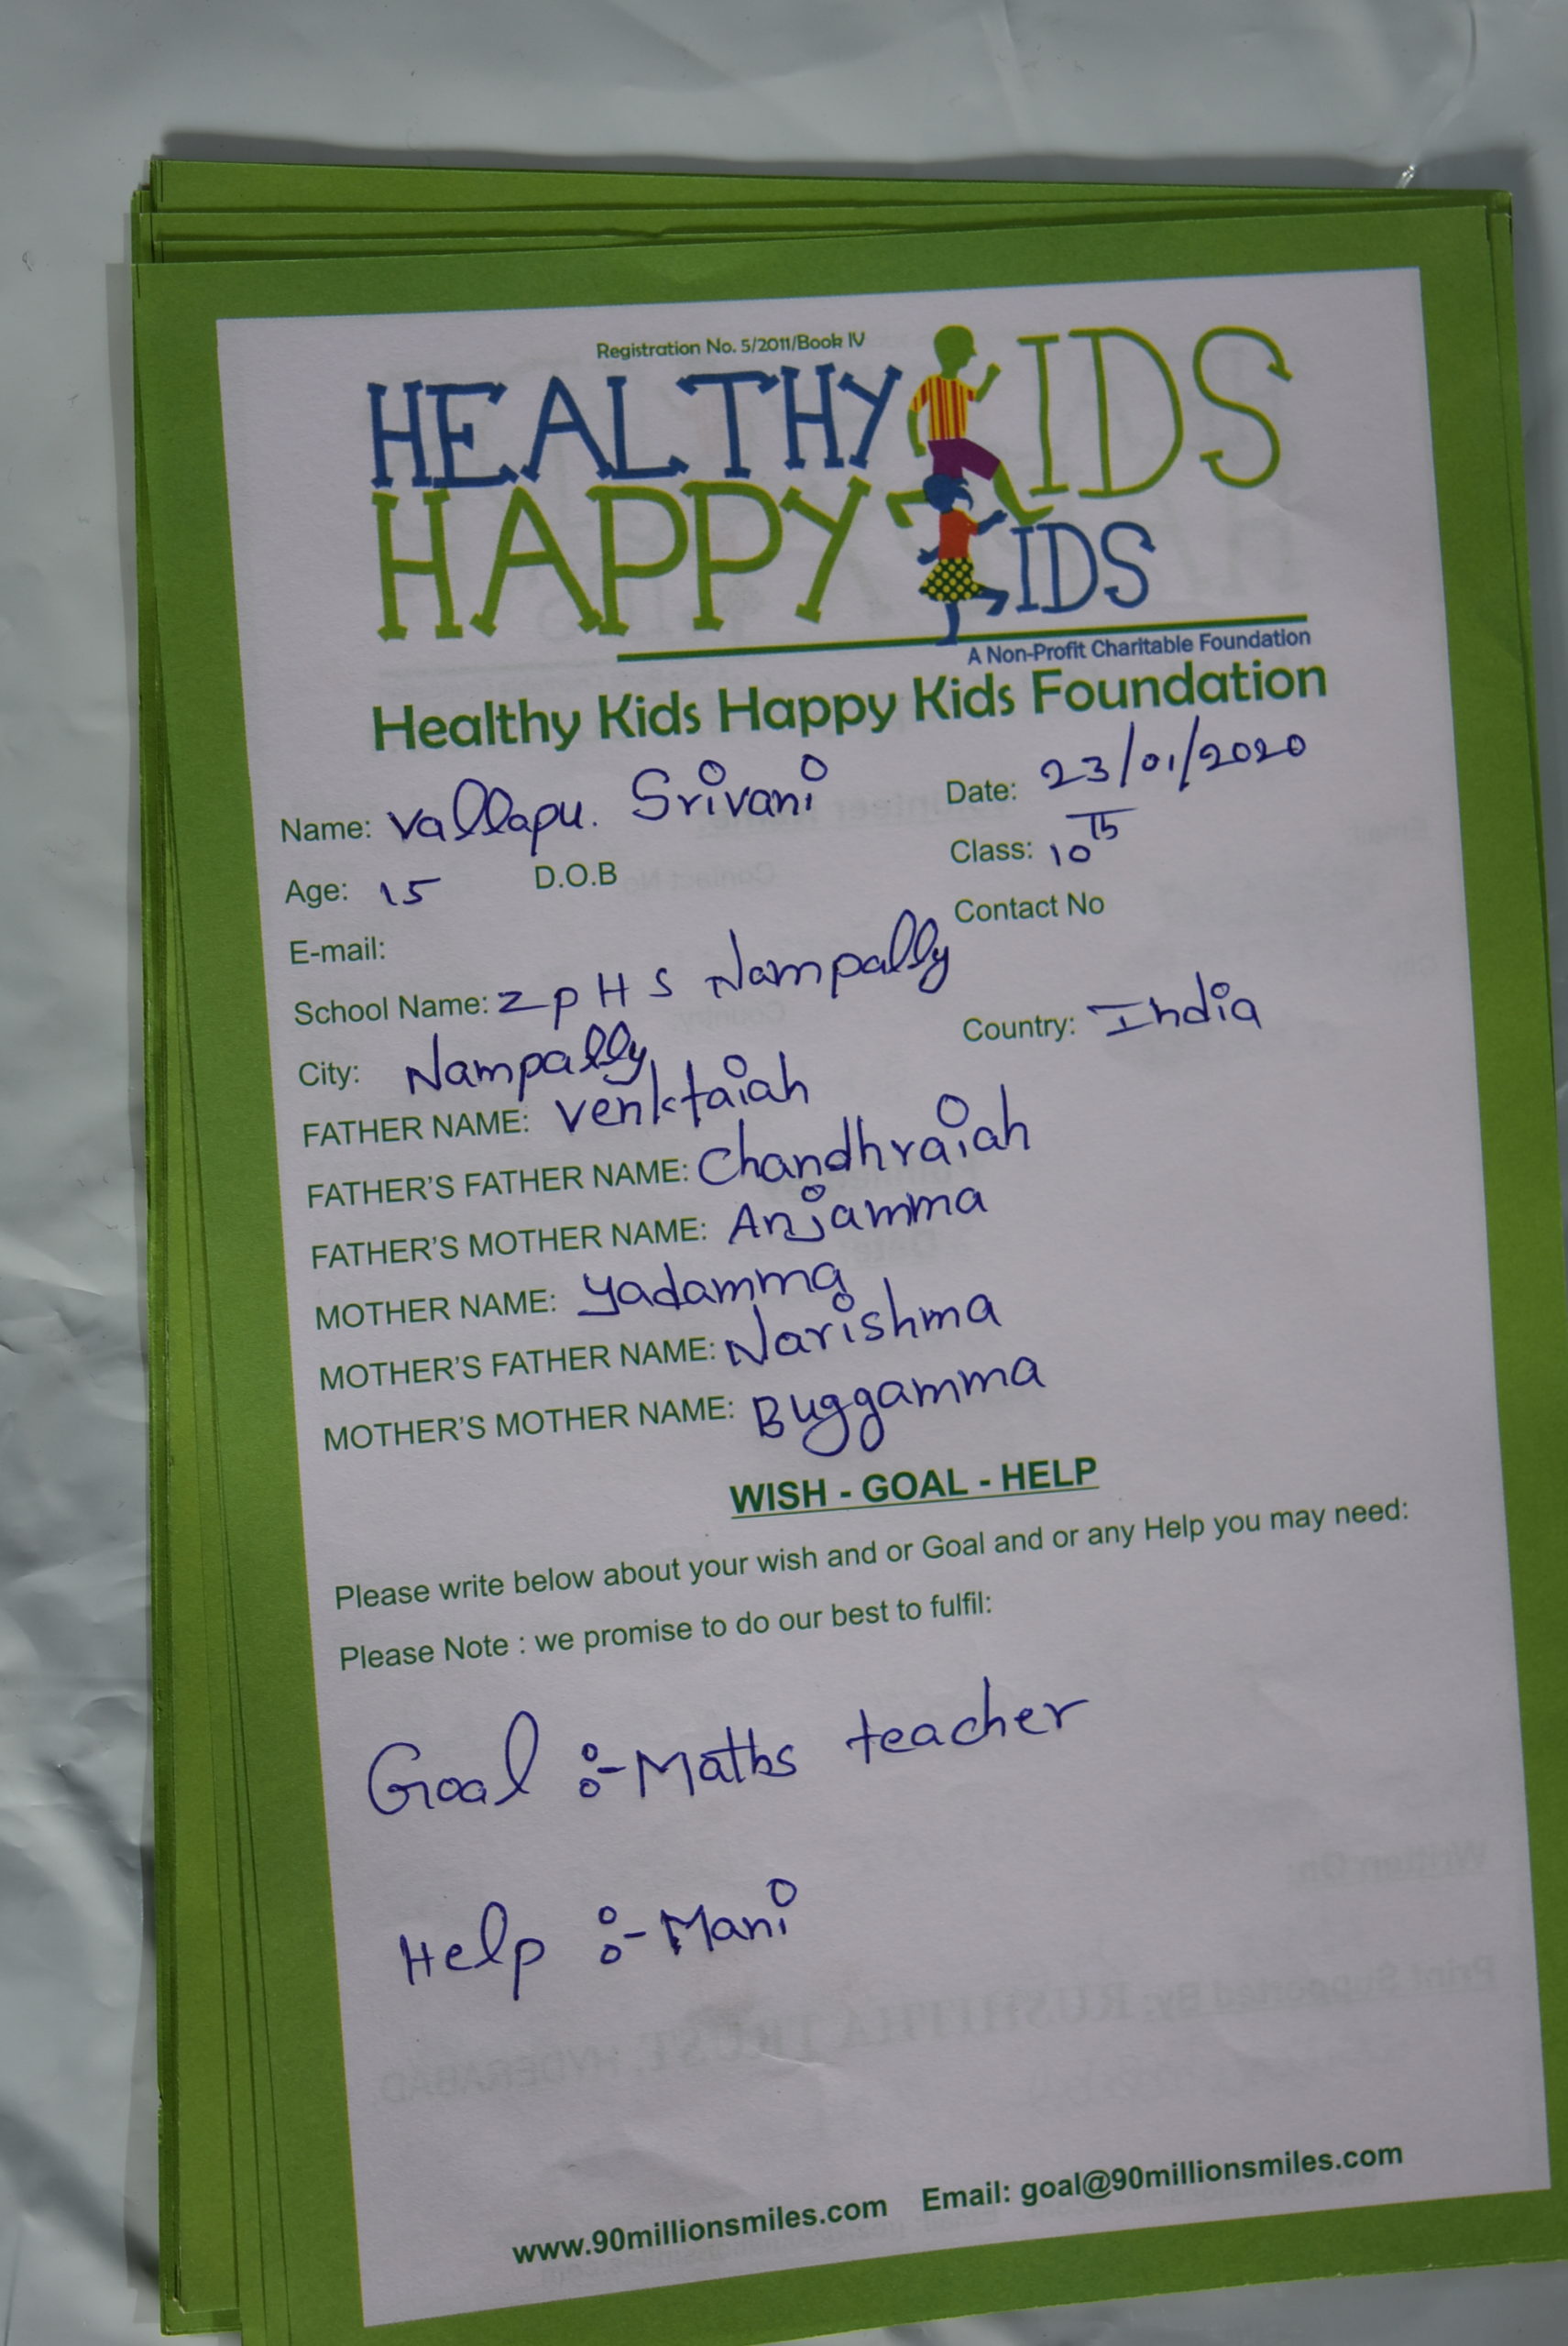 Registration No. 5/2011/Book IV
HEALTHY KIDS
HAPPY KIDS
A Non-Profit Charitable Foundation
Healthy Kids Happy Kids Foundation
Name: Vallapu. Srivani Date: 23/01/2020
Age: 15 D.O.B Class: 10th
E-mail: Contact No
School Name: ZPHS Nampally
City: Nampally Country: India
FATHER NAME: Venktaiah
FATHER'S FATHER NAME: Chandhraiah
FATHER'S MOTHER NAME: Anjamma
MOTHER NAME: Yadamma
MOTHER'S FATHER NAME: Narishma
MOTHER'S MOTHER NAME: Buggamma
WISH - GOAL - HELP
Please write below about your wish and or Goal and or any Help you may need:
Please Note : we promise to do our best to fulfil:
Goal :- Maths teacher
Help :- Mani
www.90millionsmiles.com Email: goal@90millionsmiles.com